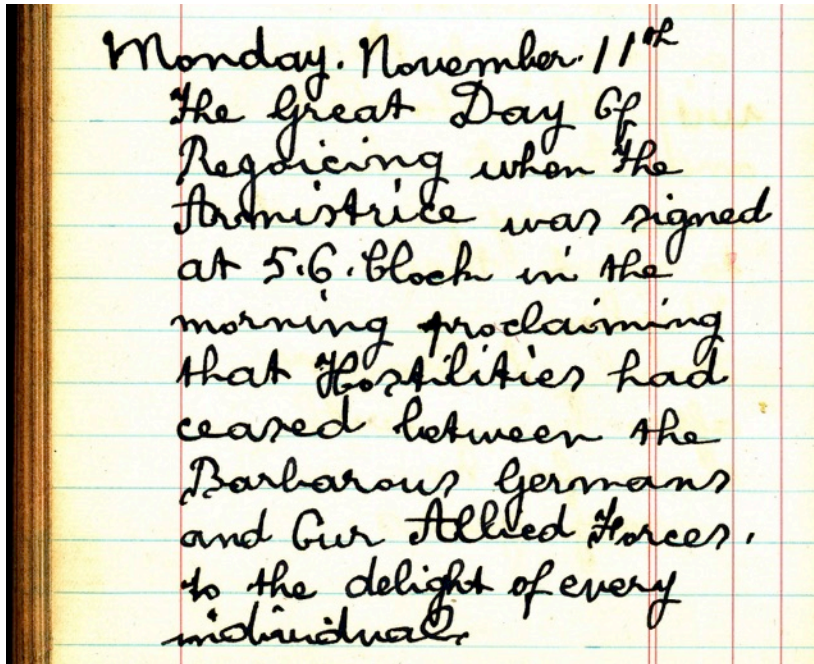 Monday. November. 11th
The Great Day Of
Rejoicing when the
Armistrice was signed
at 5.O.Clock in the
morning proclaiming
that Hostilities had
ceased between the
Barbarous Germans
and Our Allied Forces,
to the delight of every
individual.